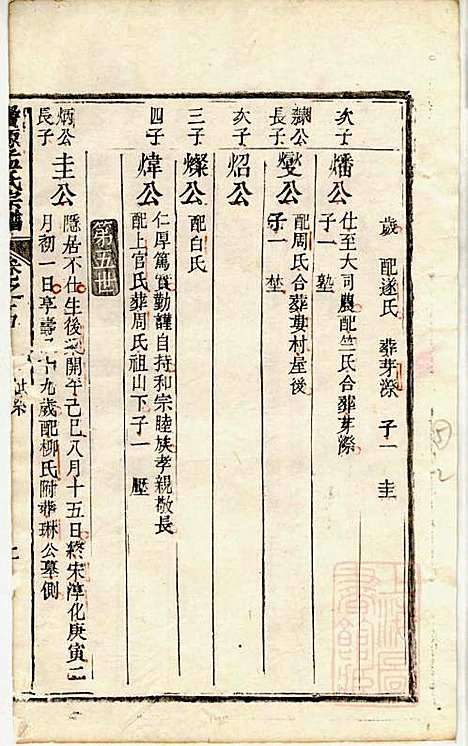 歲 配遂氏 葬芽漈 子一 圭
次子 燔公 仕至大司農配竺氏合葬芽漈
子一 塾
隸公長子 燮公 配周氏合葬婁村屋後
子一 埜
次子 炤公
三子 燦公 配白氏
四子 煒公 仁厚篤實勤謹自持和宗睦族孝親敬長
配上官氏葬周氏祖山下子一 壓
第五世
炳公長子 圭公 隱居不仕生後梁開平己巳八月十五日終宋淳化庚寅二
月初一日享壽 十九歲配柳氏附葬琳公墓側
氏宗譜
世系
5
2